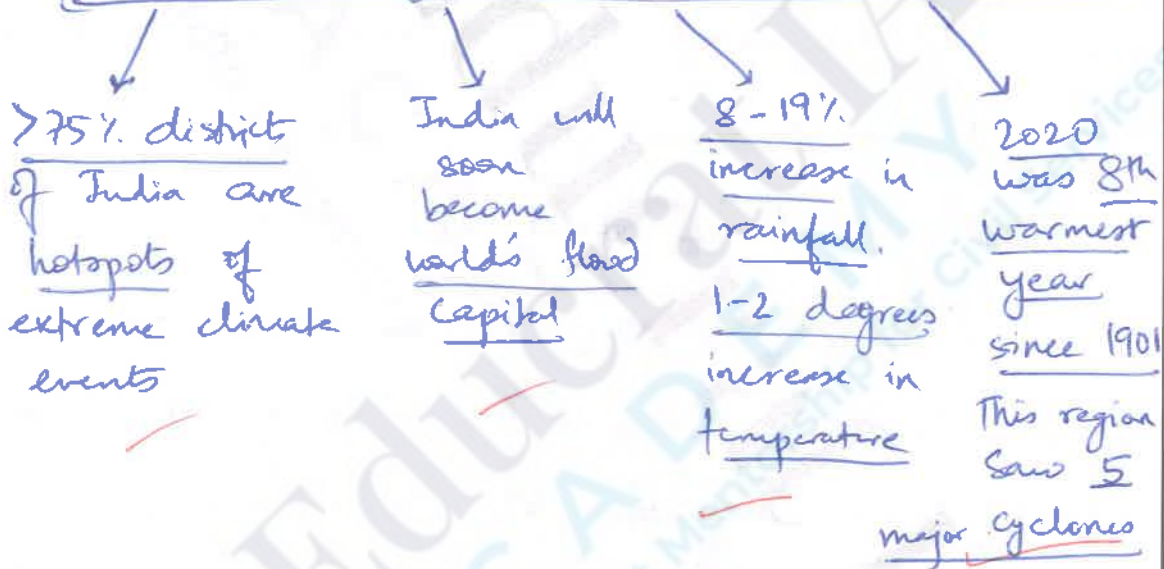 >75% district
of India are
hotspots of
extreme climate
events
India will
soon
become
world's flood
capital
8-19%
increase in
rainfall.
1-2 degrees
increase in
temperature
2020
was 8th
warmest
year
since 1901
This region
saw 5
major cyclones
Educrat IA
ADEMY
Mentorship
for Civil Services